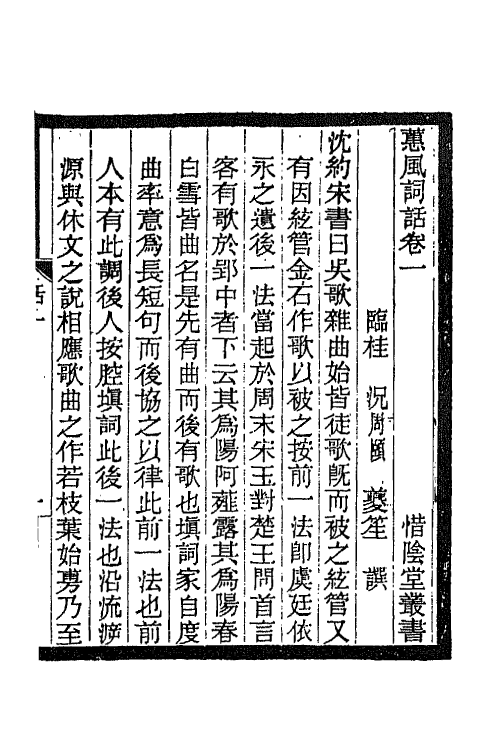 蕙風詞話卷一　惜陰堂叢書
臨桂　況周頤　夔笙　譔
沈約宋書曰吳歌雜曲始皆徒歌旣而被之絃管又
有因絃管金石作歌以被之按前一法卽虞廷依
永之遺後一法當起於周末宋玉對楚王問首言
客有歌於郢中者下云其爲陽阿薤露其爲陽春
白雪皆曲名是先有曲而後有歌也塡詞家自度
曲率意爲長短句而後協之以律此前一法也前
人本有此調後人按腔塡詞此後一法也沿流溯
源與休文之說相應歌曲之作若枝葉始旉乃至
話一
一